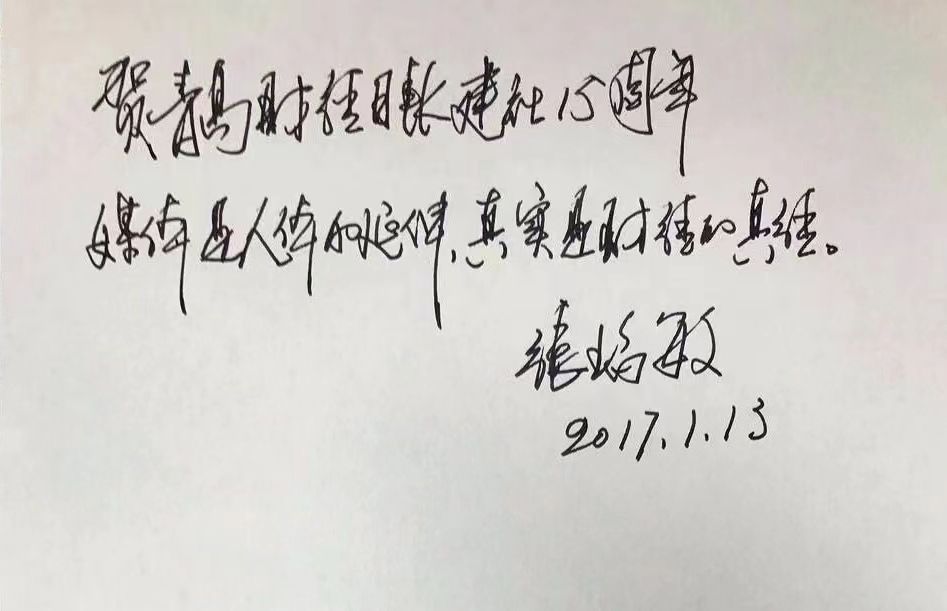 贺青岛财经日报建社15周年
媒体是人体的延伸,真实是财经的真经。
张瑞敏
2017.1.13